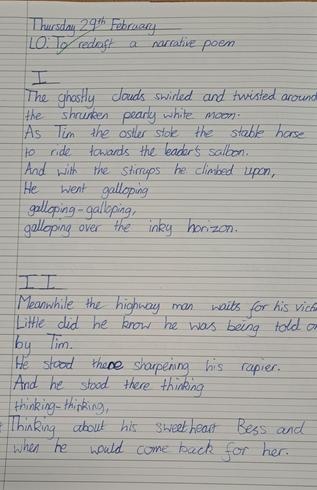 Thursday 29th February
LO: To redraft a narrative poem
I
The ghostly clouds swirled and twisted around
the shrunken pearly white moon.
As Tim the ostler stole the stable horse
to ride towards the leader's saloon.
And with the stirrups he climbed upon,
He went galloping
galloping-galloping,
galloping over the inky horizon.
II
Meanwhile the highway man waits for his
Little did he know he was being told
by Tim.
He stood there sharpening his rapier.
And he stood there thinking
thinking-thinking,
Thinking about his sweetheart Bess and
when he would come back for her.